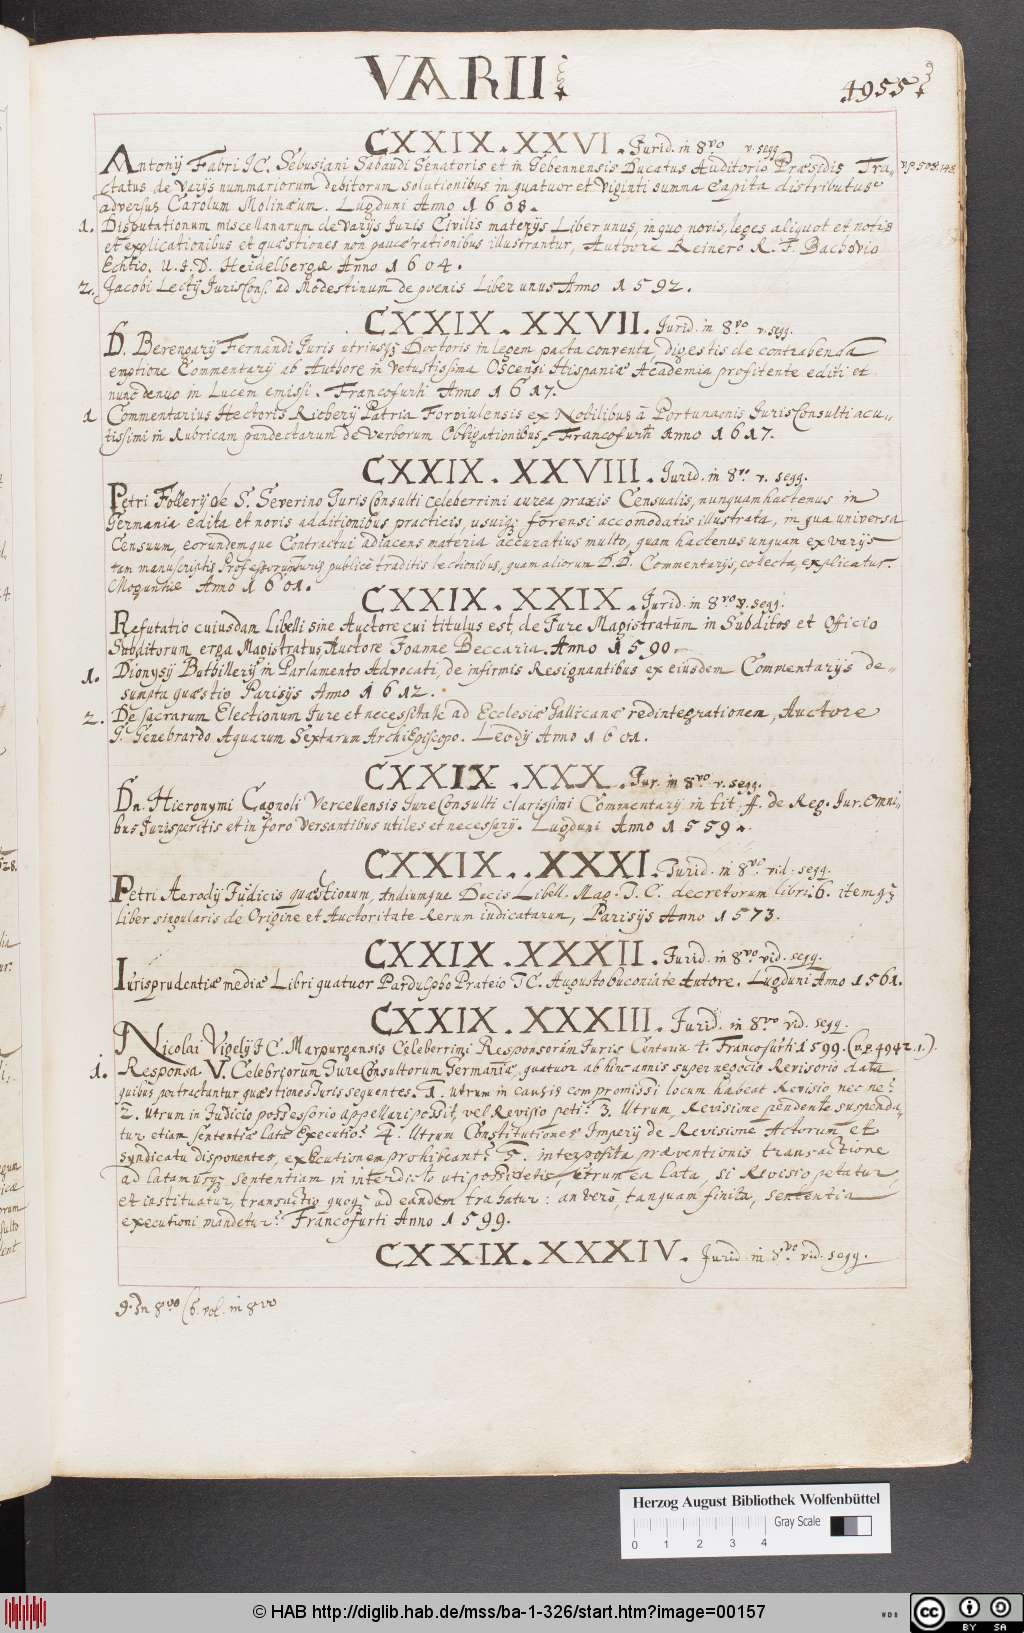 VARII
4955
CXXIX. XXVI. Jurid. in 8vo v. segg.
Antonij Fabri JC. Sebusiani Sabaudi Senatoris et in Gebennensis Ducatus Auditorio Præsidis Tra-
ctatus de Varijs nummariorum debitorum solutionibus in quatuor et Viginti summa Capita distributus
adversus Carolum Molinæum. Lugduni Anno 1608.
1. Disputationum miscellanarum de Varijs Juris Civilis materijs Liber unus, in quo novis, leges aliquot et notis
et explicationibus et quæstiones non paucæ rationibus illustrantur, Authore Reinero R. F. Bachovio
Echtio. U. J. D. Heidelbergæ Anno 1604.
2. Jacobi Lectij JurisCons. ad Modestinum de pœnis Liber unus Anno 1592.
CXXIX. XXVII. Jurid. in 8vo v. segg.
D. Berengarij Fernandi Juris utriusq; Doctoris in legem pacta conventa, digestis de contrahenda
emptione Commentarij ab Authore in vetustissima Oscensi Hispaniæ Academia profitente editi et
nunc denuo in Lucem emissi. Francofurti Anno 1617.
1 Commentarius Hectoris Richerij Patria Foroiulensis ex Nobilibus à Portunaonis JurisConsulti acu-
tissimi in Rubricam pandectarum de Verborum Obligationibus. Francofurti Anno 1617.
CXXIX. XXVIII. Jurid. in 8vo v. segg.
Petri Follerij de S. Severino JurisConsulti celeberrimi aurea praxis Censualis, nunquam hactenus in
Germania edita et novis additionibus practicis, usuiq; forensi accomodatis illustrata, in qua universa
Censuum, eorundemque Contractui adiacens materia accuratius multo, quam hactenus unquam ex varijs
tam manuscriptis Professorum Juris publicè traditis lectionibus, quam aliorum D.D. Commentarijs, colecta, explicatur.
Moguntiæ Anno 1601.
CXXIX. XXIX. Jurid. in 8vo v. segg.
Refutatio cuiusdam Libelli sine Auctore cui titulus est, de Jure Magistratûm in Subditos et Officio
Subditorum erga Magistratus, Auctore Joanne Beccaria. Anno 1590.
1. Dionysij Buthillerij in Parlamento Advocati, de infirmis Resignantibus ex eiusdem Commentarijs de-
sumpta quæstio Parisijs Anno 1612.
2. De sacrarum Electionum Jure et necessitate ad Ecclesiæ Gallicanæ redintegrationem, Auctore
G. Genebrardo Aquarum Sextarum ArchiEpiscopo. Leodij Anno 1601.
CXXIX. XXX. Jur. in 8vo v. segg.
Dn. Hieronymi Cagnoli Vercellensis JureConsulti clarissimi Commentarij in tit. ff. de Reg. Jur. omni-
bus Jurisperitis et in foro Versantibus utiles et necessarij. Lugduni Anno 1559.
CXXIX. XXXI. Jurid. in 8vo vid. segg.
Petri Aerodij Judicis quæstionum, Andiumque Decis. Libell. Mag. J. C. decretorum libri 6. itemq;
liber singularis de Origine et Auctoritate Rerum iudicatarum, Parisijs Anno 1573.
CXXIX. XXXII. Jurid. in 8vo vid. segg.
Jurisprudentiæ mediæ Libri quatuor Pardulpho Prateio JC. Augustobuconiate Autore. Lugduni Anno 1561.
CXXIX. XXXIII. Jurid. in 8vo vid. segg.
Nicolai Vigelij JC. Marpurgensis Celeberrimi Responsorum Juris Centuria 1. Francofurti 1599. (v. p. 4942.1.)
1. Responsa V. Celebriorum JureConsultorum Germaniæ, quatuor ab hinc annis super negocio Revisorio data
quibus pertractantur quæstiones Juris sequentes. 1. Utrum in causis compromissi locum habeat Revisio, nec ne?
2. Utrum in Judicio possessorio appellari possit, vel Revisio peti? 3. Utrum, Revisione pendente suspenda-
tur etiam sententiæ latæ Executio? 4. Utrum Constitutiones Imperij de Revisione Actorum et
syndicatu disponentes, executionem prohibeant? 5. interposita præventionis transactione
ad latamusq; sententiam in interdicto uti possidetis, utrum ea lata, si Revisio petatur,
et instituatur, transactio quoq; ad eandem trahatur: an vero, tanquam finita, sententia
executioni mandetur? Francofurti Anno 1599.
CXXIX. XXXIV. Jurid. in 8vo vid. segg.
9. In 8vo (6. vol. in 8vo
Herzog August Bibliothek Wolfenbüttel
Gray Scale
0 1 2 3 4
© HAB http://diglib.hab.de/mss/ba-1-326/start.htm?image=00157
cc BY SA